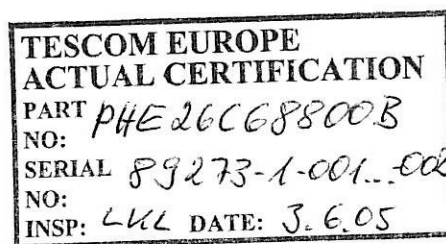 TESCOM EUROPE
ACTUAL CERTIFICATION
PART NO: PHE26C68800B
SERIAL NO: 89273-1-001...002
INSP: LKL DATE: 3.6.05